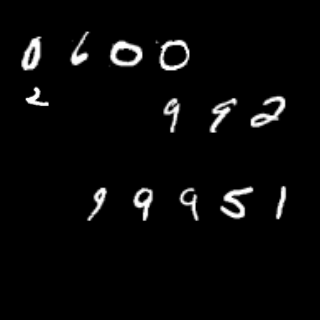 0600
2
992
99951